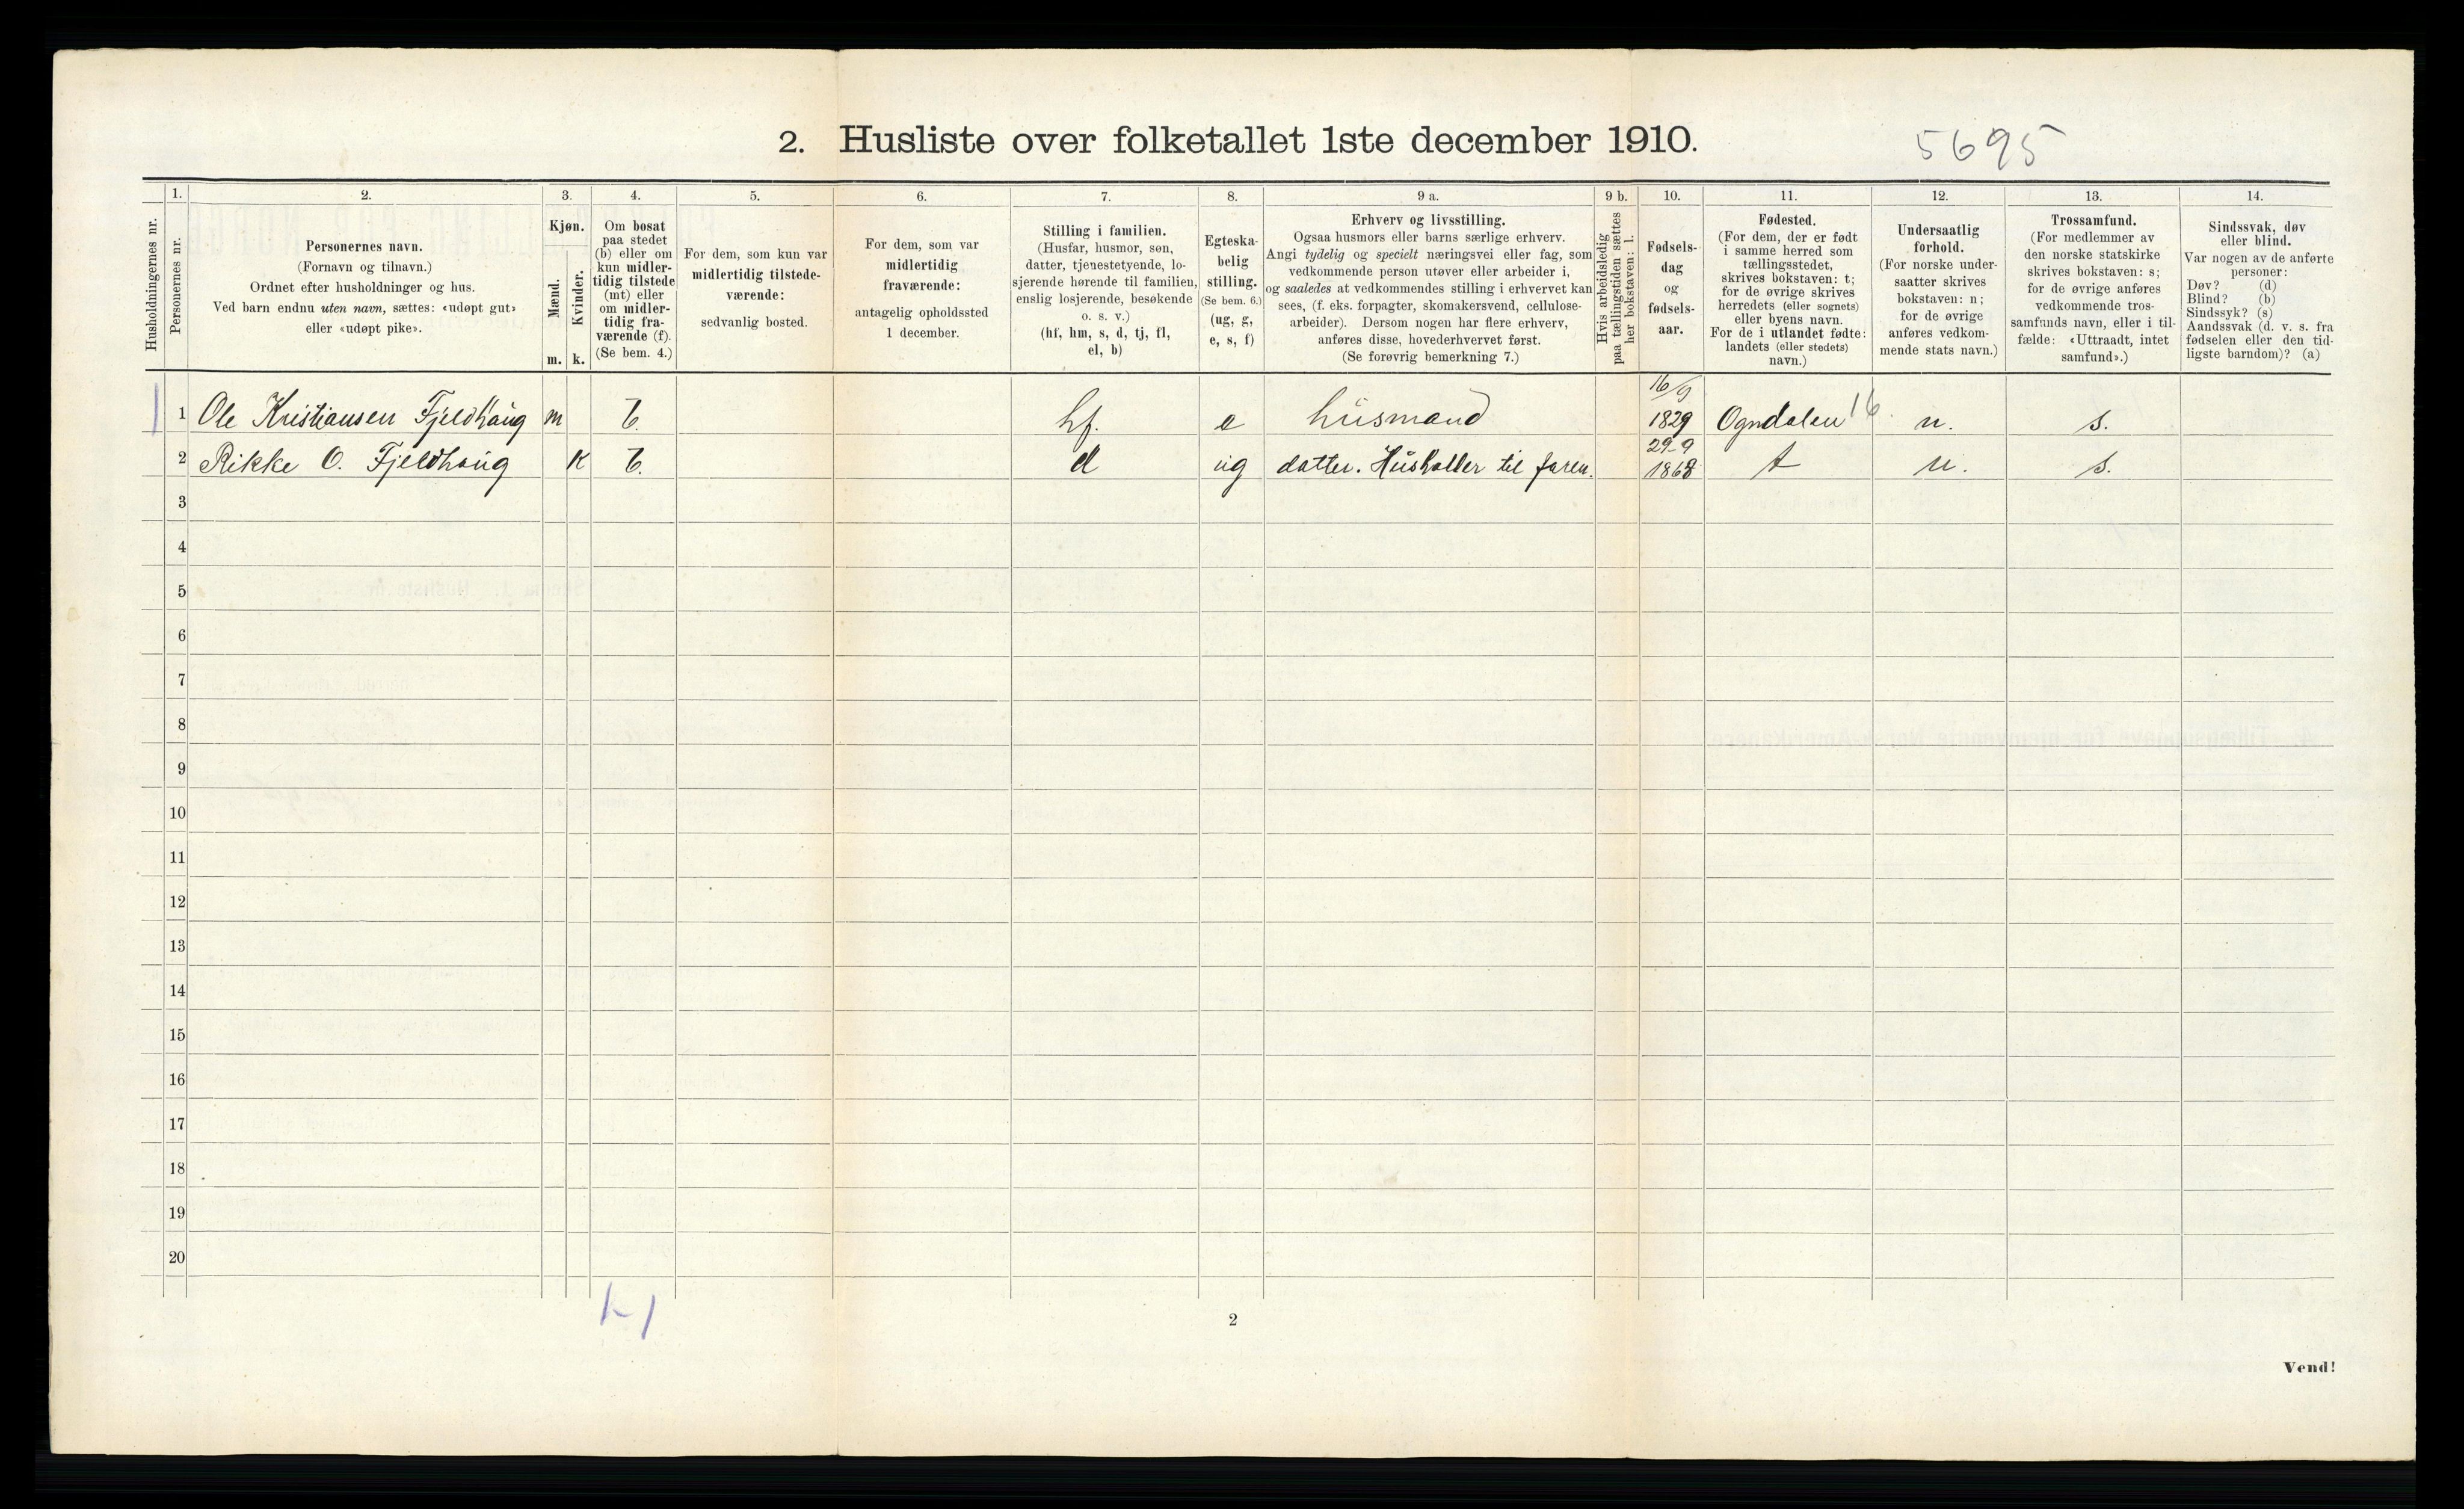 2. Husliste over folketallet 1ste december 1910.
5695
1.
2.
3.
4.
5.
6.
7.
8.
9 a.
9 b.
10.
11.
12.
13.
14.
Husholdningernes nr.
Personernes nr.
Personernes navn.
(Fornavn og tilnavn.)
Ordnet efter husholdninger og hus.
Ved barn endnu uten navn, sættes: «udøpt gut»
eller «udøpt pike».
Kjøn.
Mænd.
Kvinder.
m. k.
Om bosat
paa stedet
(b) eller om
kun midler-
tidig tilstede
(mt) eller
om midler-
tidig fra-
værende (f).
(Se bem. 4.)
For dem, som kun var
midlertidig tilstede-
værende:
sedvanlig bosted.
For dem, som var
midlertidig
fraværende:
antagelig opholdssted
1 december.
Stilling i familien.
(Husfar, husmor, søn,
datter, tjenestetyende, lo-
sjerende hørende til familien,
enslig losjerende, besøkende
o. s. v.)
(hf, hm, s, d, tj, fl,
el, b)
Egteska-
belig
stilling.
(Se bem. 6.)
(ug, g,
e, s, f)
Erhverv og livsstilling.
Ogsaa husmors eller barns særlige erhverv.
Angi tydelig og specielt næringsvei eller fag, som
vedkommende person utøver eller arbeider i,
og saaledes at vedkommendes stilling i erhvervet kan
sees, (f. eks. forpagter, skomakersvend, cellulose-
arbeider). Dersom nogen har flere erhverv,
anføres disse, hovederhvervet først.
(Se forøvrig bemerkning 7.)
Hvis arbeidsledig
paa tællingstiden sættes
her bokstaven: l.
Fødsels-
dag
og
fødsels-
aar.
Fødested.
(For dem, der er født
i samme herred som
tællingsstedet,
skrives bokstaven: t;
for de øvrige skrives
herredets (eller sognets)
eller byens navn.
For de i utlandet fødte:
landets (eller stedets)
navn.)
Undersaatlig
forhold.
(For norske under-
saatter skrives
bokstaven: n;
for de øvrige
anføres vedkom-
mende stats navn.)
Trossamfund.
(For medlemmer av
den norske statskirke
skrives bokstaven: s;
for de øvrige anføres
vedkommende tros-
samfunds navn, eller i til-
fælde: «Uttraadt, intet
samfund».)
Sindssvak, døv
eller blind.
Var nogen av de anførte
personer:
Døv? (d)
Blind? (b)
Sindssyk? (s)
Aandssvak (d. v. s. fra
fødselen eller den tid-
ligste barndom)? (a)
16/9
1 Ole Kristiansen Fjeldhaug m b. hf. e husmand 1829 Ogndalen 16. n. s.
29-9
2 Rikke O. Fjeldhaug k b. d ug datter. Husholler til faren. 1868 t n. s.
3
4
5
6
7
8
9
10
11
12
13
14
15
16
17
18
19
20
2
Vend!